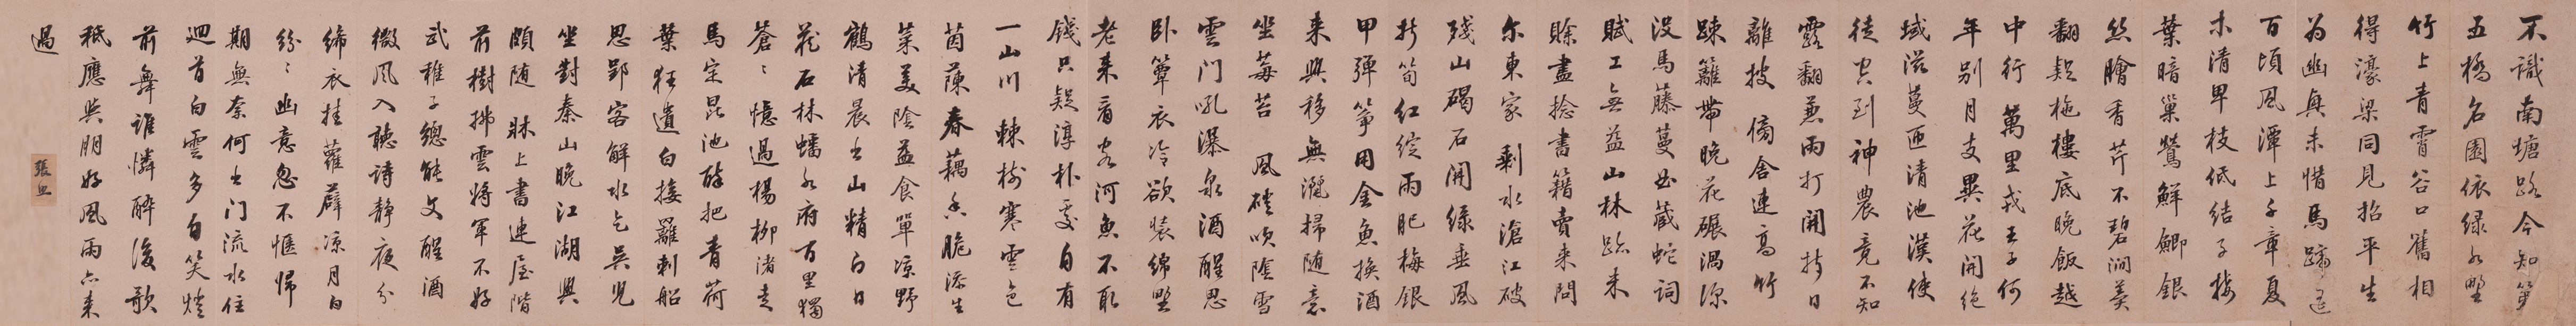 不識南塘路今知第
五橋名園依綠水野
竹上青霄谷口舊相
得濠梁同見招平生
為幽興未惜馬蹄遥
百頃風潭上千章夏
木清卑枝低結子接
葉暗巢鶯鮮鯽銀
絲膾香芹不碧澗羹
翻疑柂樓底晚飯越
中行 萬里戎王子何
年别月支異花開絶
域滋蔓匝清池漢使
徒空到神農竟不知
露翻兼雨打開拆日
離披 傍舍連高竹
踈籬帶晚花碾渦深
没馬藤蔓曲藏蛇詞
賦工無益山林跡未
賒盡捻書籍賣来問
尔東家 剩水滄江破
殘山碣石開綠垂風
折笋紅綻雨肥梅銀
甲彈箏用金魚換酒
来興移無灑掃随意
坐莓苔 風磴吹陰雪
雲門吼瀑泉酒醒思
卧簟衣冷欲裝綿野
老来看客河魚不取
錢只疑淳朴處自有
一山川 棘樹寒雲色
茵蔯春藕香脆添生
菜美陰益食單凉野
鶴清晨出山精白日
藏石林蟠水府百里獨
蒼〻 憶過楊柳渚走
馬定昆池醉把青荷
葉狂遺白接䍦刺船
思郢客解水乞吳兒
坐對秦山晚江湖興
頗随 牀上書連屋階
前樹拂雲將軍不好
武稚子總能文醒酒
微風入聽詩静夜分
絺衣挂蘿薜凉月白
紛〻 幽意忽不愜歸
期無奈何出门流水住
迴首白雲多自笑燈
前舞誰憐醉後歌
秪應與朋好風雨亦来
過